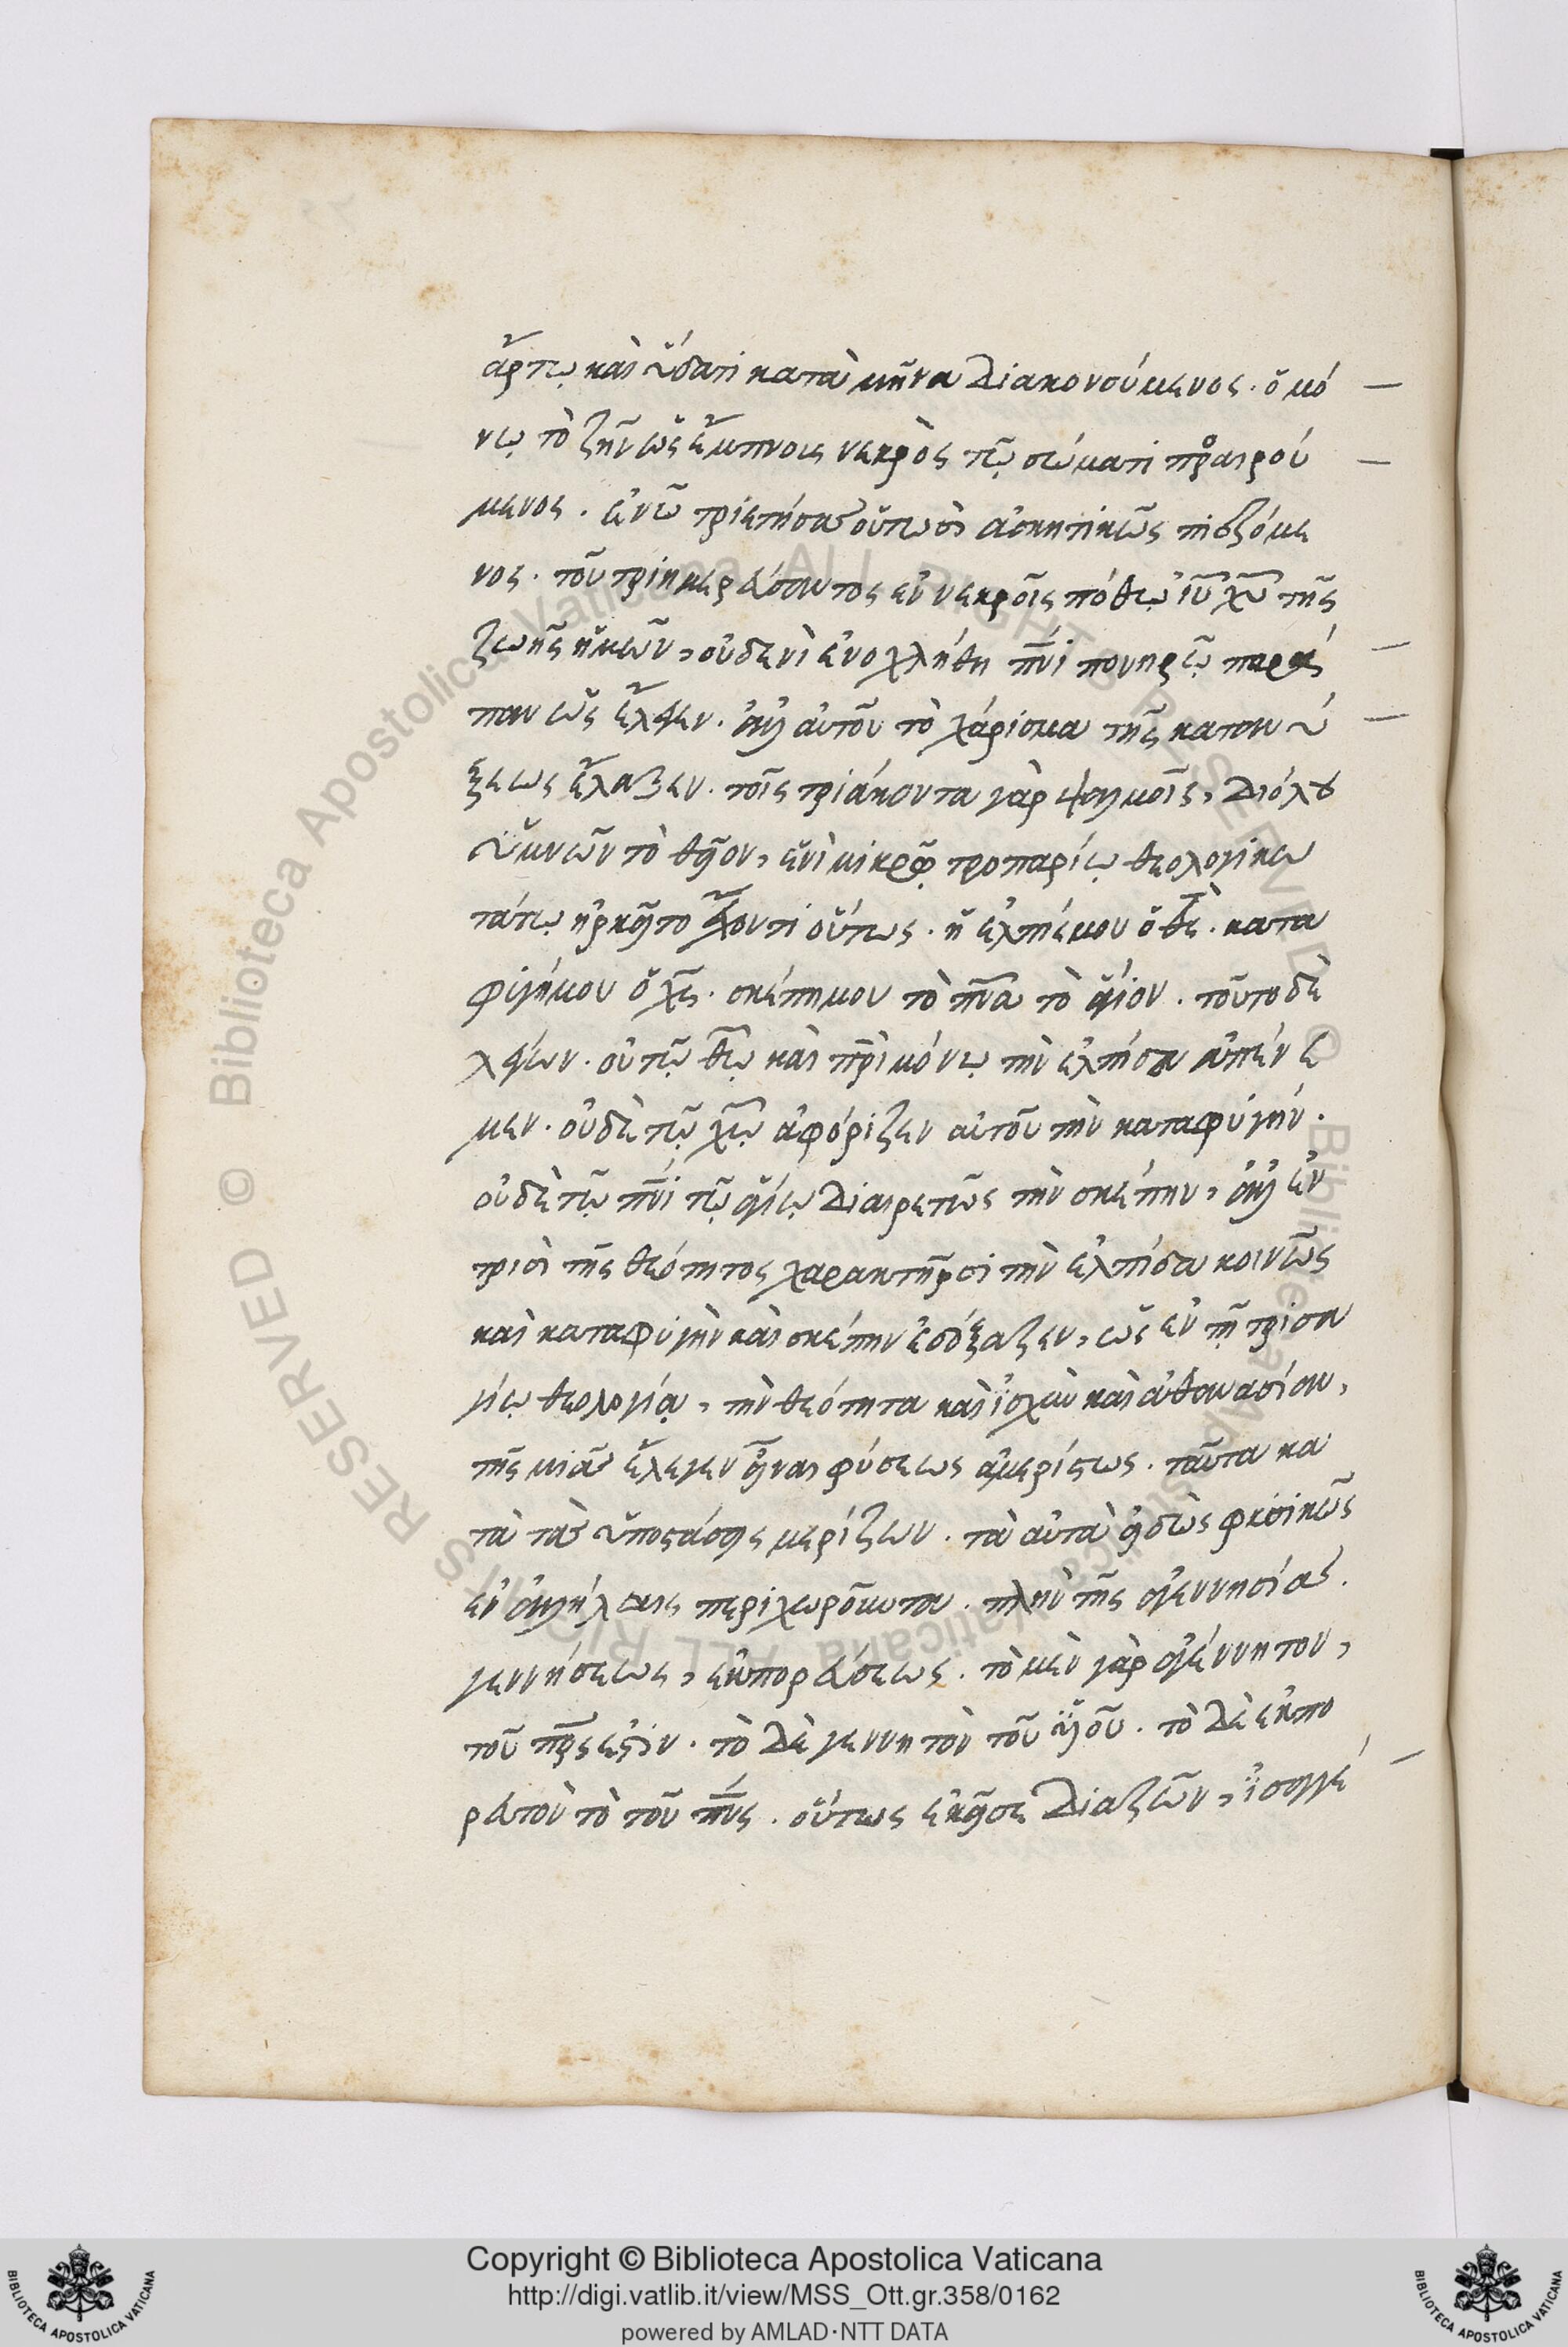 ἄρτῳ καὶ ὕδατι κατὰ μῆνα διακονούμενος. ὁ μό
νῳ τὸ ζῆν ὡς ἔμπνοις νεκρὸς τῷ σώματι προαιρού
μενος. ἐν ᾧ τριετήσας οὕτωσὶ ἀσκητικῶς πιεζόμε
νος. τοῦ τριημερεύσαντος ἐν νεκροῖς πόθῳ ἰυ χυ τῆς
ζωῆς ἡμῶν, οὐδενὶ ἐνοχλήθη πνι πονηρῷ παρά
παν ὡς ἔλεγεν. ἀλλ' αὐτοῦ τὸ χάρισμα τῆς κατανύ
ξεως ἔλαβεν. τοῖς τριάκοντα γὰρ ψαλμοῖς, διόλου
ὑμνῶν τὸ θεῖον, ἑνὶ μικρῷ τροπαρίῳ θεολογικω
τάτῳ ἠρκεῖτο ἔχοντι οὕτως. ἡ ἐλπίς μου ὁ θς. κατα
φυγή μου ὁ χς. σκέπη μου τὸ πνα τὸ ἅγιον. τοῦτο δὲ
λέγων. οὐ τῷ θω καὶ πρι μόνῳ τὴν ἐλπίδα ἀπένε
μεν. οὐδὲ τῷ χω ἀφόριζεν αὐτοῦ τὴν καταφυγήν.
οὐδὲ τῷ πνι τῷ ἁγίῳ διαιρετῶς τὴν σκέπην, ἀλλ' ἐν
τρισὶ τῆς θεότητος χαρακτῆρσι τὴν ἐλπίδα κοινῶς
καὶ καταφυγὴν καὶ σκέπην ἐδόξαζεν, ὡς ἐν τῇ τρισα
γίῳ θεολογίᾳ, τὴν θεότητα καὶ ἰσχὺν καὶ ἀθανασίαν,
τῆς μιᾶς ἔλεγεν εἶναι φύσεως ἀμερίστως. ταῦτα κα
τὰ τὰς ὑποστάσεις μερίζων. τὰ αὐτὰ εἰδὼς φυσικῶς
ἐν ἀλλήλαις περιχωροῦντα. πλὴν τῆς ἀγεννησίας.
γεννήσεως, ἐκπορεύσεως. τὸ μὲν γὰρ ἀγέννητον,
τοῦ πρς ἐστὶν. τὸ δὲ γεννητὸν τοῦ υἱοῦ. τὸ δὲ ἐκπο
ρευτὸν τὸ τοῦ πνς. οὕτως ἐκεῖσε διαζῶν, ἰσαγγέ
Copyright © Biblioteca Apostolica Vaticana
http://digi.vatlib.it/view/MSS_Ott.gr.358/0162
powered by AMLAD·NTT DATA